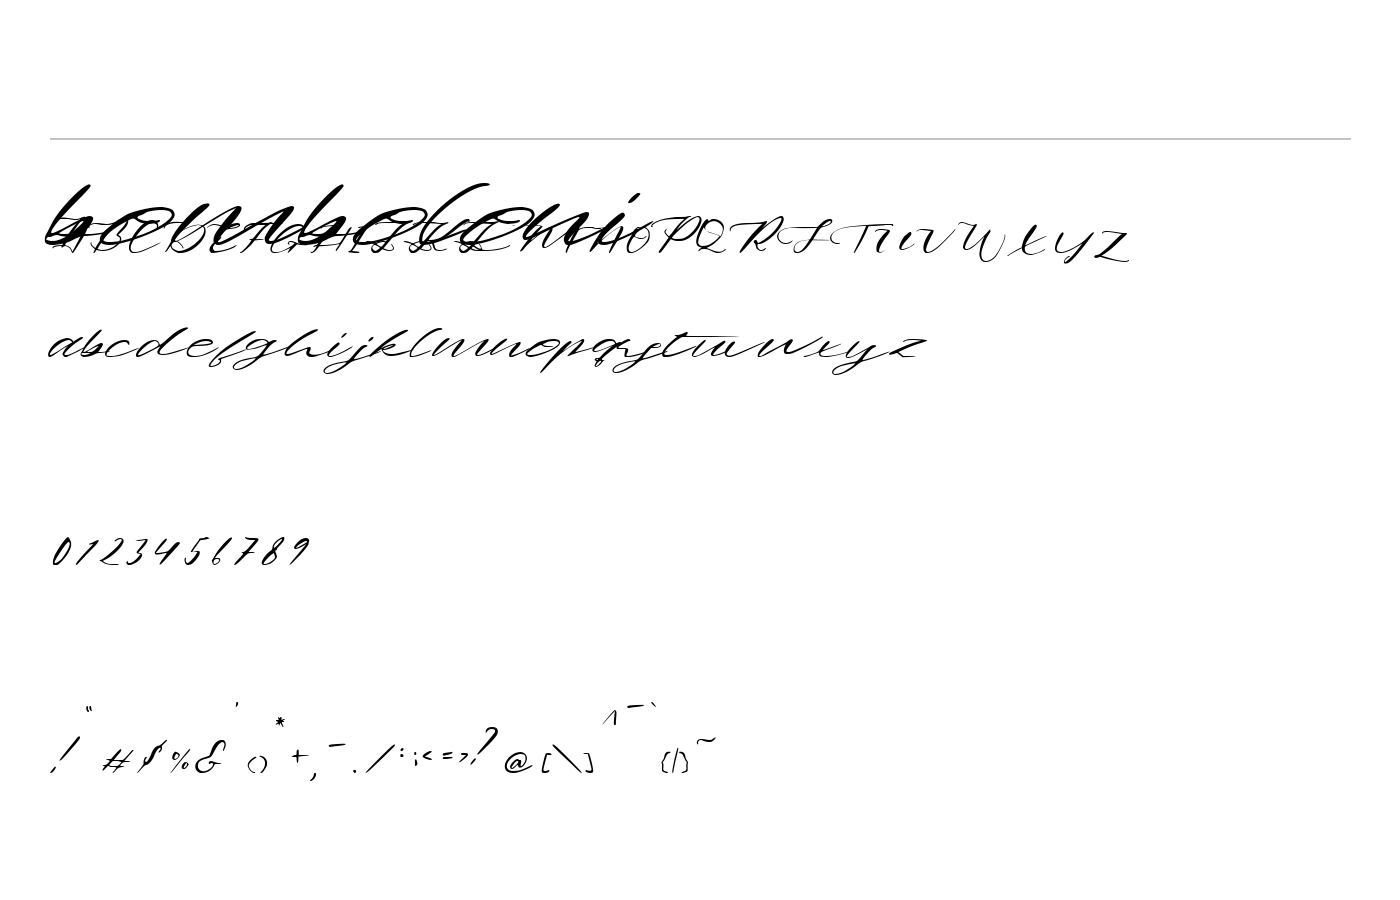 bomboloni
ABCDEFGHIJKLMNOPQRSTUVWXYZ
abcdefghijklmnopqrstuvwxyz
0123456789
!"#$%&'()*+,-./:;<=>?@[\]^_`{|}~